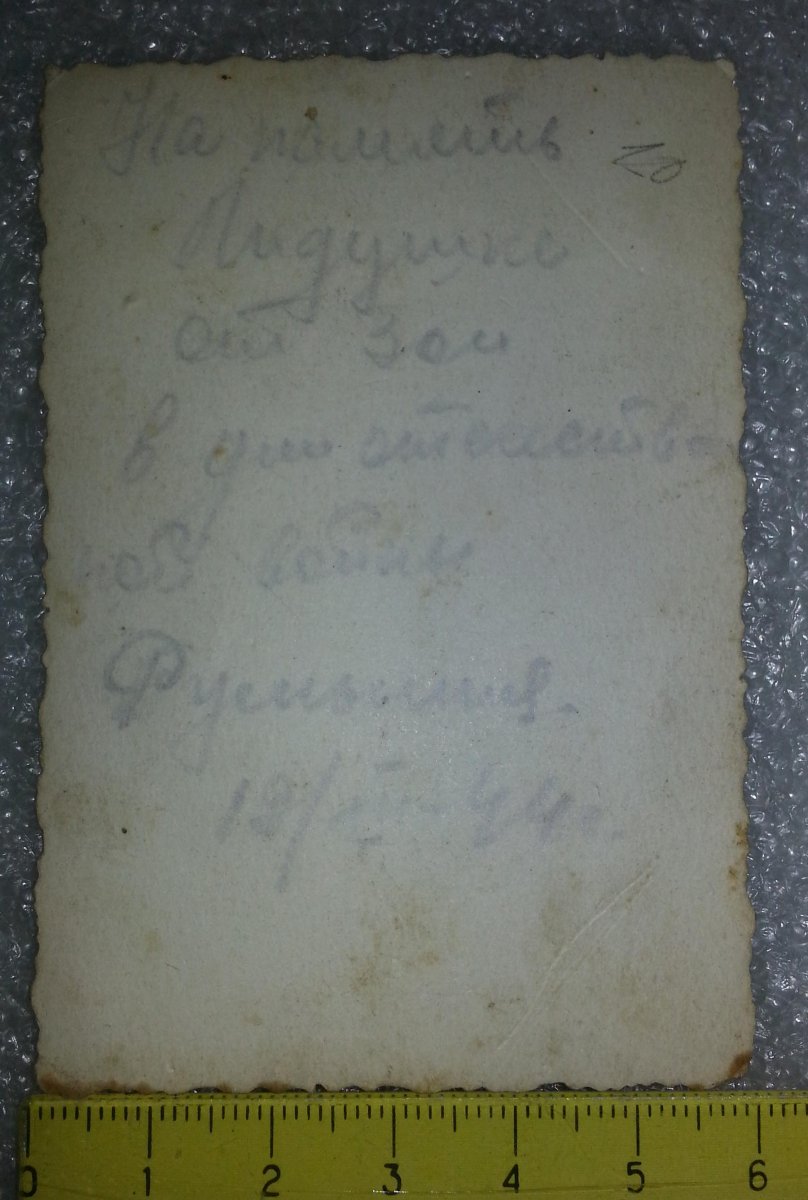 На память
Лидушке
от Зои
в дни отечеств=
ной войны
Румыния.
44г.
0 1 2 3 4 5 6